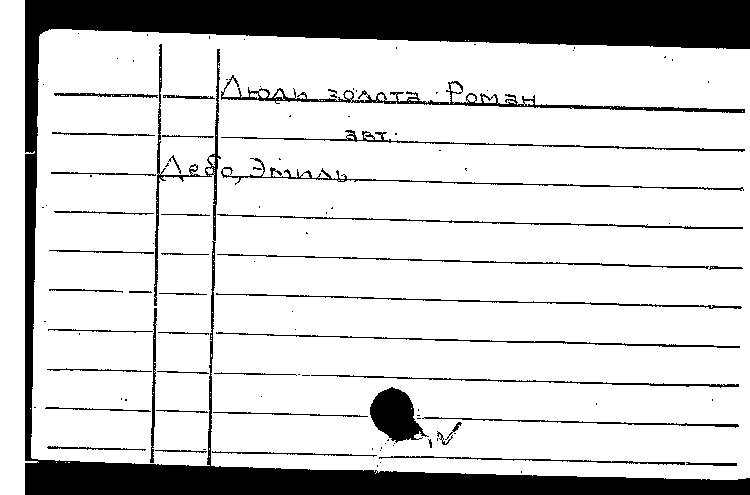 Люди золота. Роман
авт.:
Дебо, Эмиль